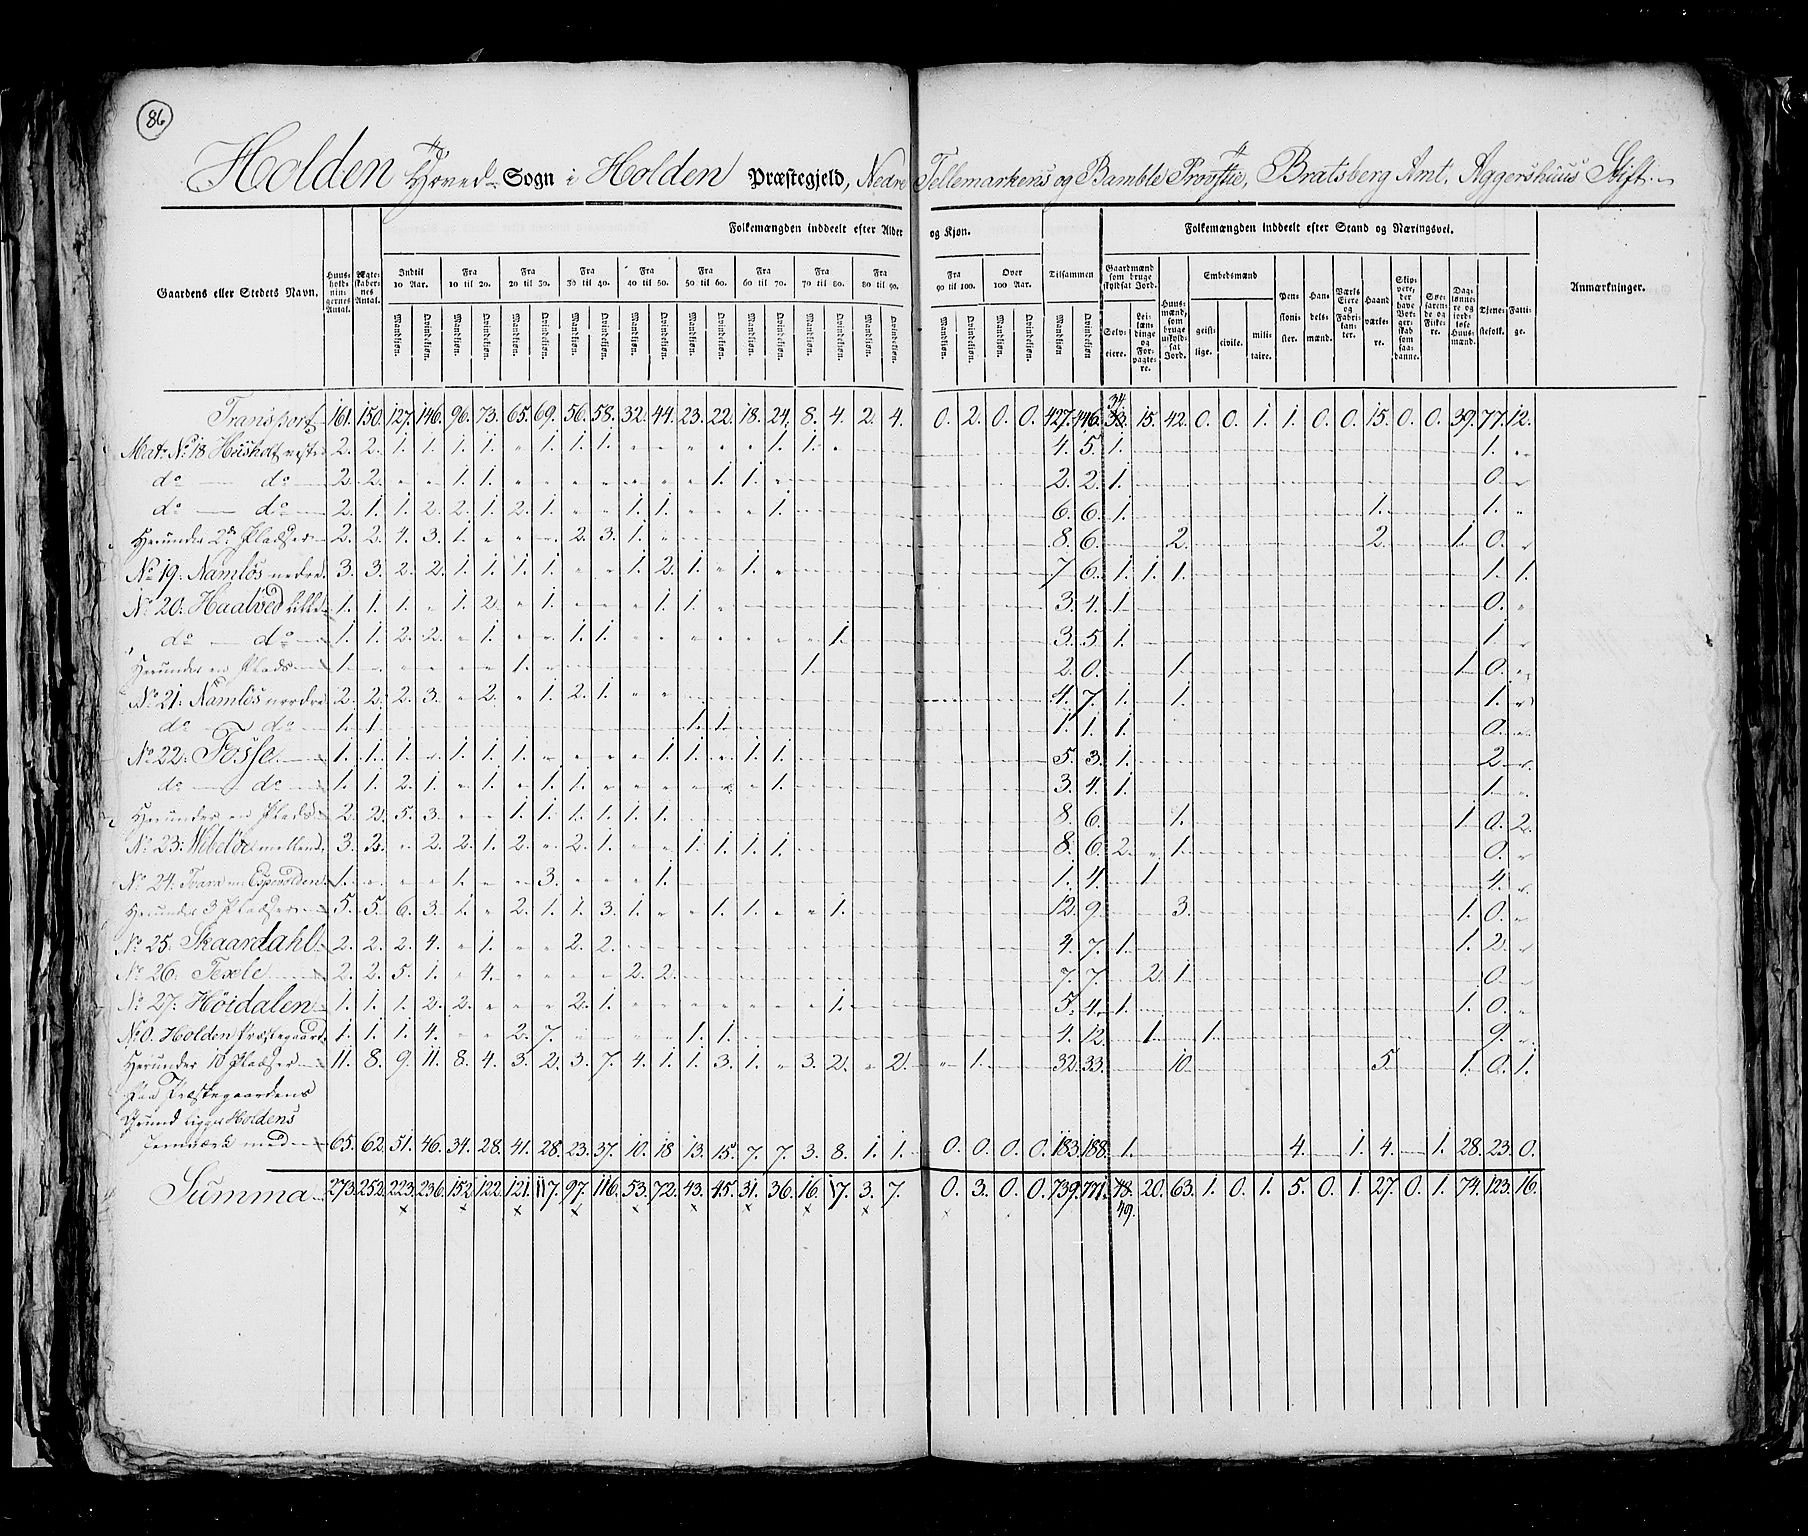 86
Holden Hoved Sogn i Holden Præstegjeld, Nedre Tellemarkens og Bamble Provstie, Bratsberg Amt, Aggershuus Stift.
Folkemængden inddeelt efter Alder og Kjøn. Folkemængden inddeelt efter Stand og Næringsvei.
Gaardens eller Stedets Navn. Huusholdningernes Antal. Ægteskabernes Antal. Indtil 10 Aar. Fra 10 til 20. Fra 20 til 30. Fra 30 til 40. Fra 40 til 50. Fra 50 til 60. Fra 60 til 70. Fra 70 til 80. Fra 80 til 90. Fra 90 til 100. Over 100 Aar. Tilsammen Gaardmænd som bruge skyldsat Jord. Huusmænd, som bruge uskyldsat Jord. Embedsmænd Pensionister. Handelsmænd. Værks Eiere og Fabrikanter. Haandværkere. Søefarende og Fiskere. Daglønnere og jordløse Huusmænd. Tjenestefolk. Fattige. Anmærkninger.
Mandkjøn. Qvindekjøn. Mandkjøn. Qvindekjøn. Mandkjøn. Qvindekjøn. Mandkjøn. Qvindekjøn. Mandkjøn. Qvindekjøn. Mandkjøn. Qvindekjøn. Mandkjøn. Qvindekjøn. Mandkjøn. Qvindekjøn. Mandkjøn. Qvindekjøn. Mandkjøn. Qvindekjøn. Mandkjøn. Qvindekjøn. Mandkjøn. Qvindekjøn. Selveiere. Leilændinge og Forpagtere. geistlige. civile. militaire.
34.
Transport 161. 150. 127. 146. 96. 73. 65. 69. 56. 58. 32. 44. 23. 22. 18. 24. 8. 4. 2. 4. 0. 2. 0. 0. 427. 446. 15. 42. 0. 0. 1. 1. 0. 0. 15. 0. 0. 39. 77. 12.
No 18 2. 2. 1. 1. 1. 1. " 1. 1. 1. 1. 1. 4. 5. 1. 1.
do do 2. 2. 1. 1. 1. 1. 2. 2. 1. 0.
do do 2. 1. 1. 2. 2. 1. 2. 1. 1. 1. 1. 6. 6. 1. 1. 1.
Herunder 2de Pladser 2. 2. 4. 3. 1. 2. 3. 1. 8. 6. 2. 2. 1. 0.
No 19. Namløs nedre 3. 3. 2. 2. 1. 1. 1. 1. 1. 2. 1. 1. 7. 6. 1. 1. 1. 1. 1.
No 20. Haatved lille 1. 1. 1. 1. 2. 1. 1. 1. 3. 4. 1. 0.
do do 1. 1. 2. 2. 1. 1. 1. 1. 3. 5. 1. 1.
Herunder en Plads 1. 1. 1. 2. 0. 1. 1. 0.
No 21. Namløs nordre 2. 2. 2. 3. 2. 1. 2. 1. 4. 7. 1. 1. 1.
do do 1. 1. 1. 1. 1. 1. 1. 0.
No 22. Fosse 1. 1. 1. 1. 1. 1. 1. 1. 1. 1. 5. 3. 1. 2.
do do 1. 1. 2. 1. 1. 1. 1. 1. 3. 4. 1. 1.
Herunder en Plads 2. 2. 5. 3. 1. 1. 1. 1. 1. 1. 8. 6. 1. 1. 0. 2.
No 23. 3. 2. 2. 2. 1. 2. 2. 1. 1. 1. 1. 1. 8. 6. 2. 1. 0.
No 24. 1. 1. 3. 1. 1. 4. 1. 4.
Herunder 3 Pladser 5. 5. 6. 3. 1. 2. 1. 1. 3. 1. 1. 1. 1. 12. 9. 3. 1. 0.
No 25. Skaardahl 2. 2. 2. 4. 1. 2. 2. 4. 7. 1. 1. 2.
No 26. Texle 2. 2. 5. 1. 4. 2. 2. 7. 7. 2. 1. 0.
No 27. Høidalen 1. 1. 1. 2. 2. 2. 1. 1. 5. 4. 1. 1. 0.
No 0. Holden Præstegaard 1. 1. 1. 4. 2. 7. 1. 1. 4. 12. 1. 1. 9.
Herunder 10 Pladser 11. 8. 9. 11. 8. 4. 3. 2. 3. 7. 4. 1. 1. 3. 1. 3. 2. 2. 1. 32. 33. 10. 5. 1. 0. 1.
Paa Præstegaardens
Grund ligger Holdens
Jernværk med 65. 62. 51. 46. 34. 28. 41. 28. 23. 37. 10. 18. 13. 15. 7. 7. 3. 8. 1. 1. 0. 0. 0. 0. 183. 188. 1. 4. 1. 4. 1. 28. 23. 0.
Summa 273. 252. 223. 236. 152. 122. 121. 117. 97. 116. 53. 72. 43. 45. 31. 36. 16. 17. 3. 7. 0. 3. 0. 0. 739. 771. 48. 20. 63. 1. 0. 1. 5. 0. 1. 27. 0. 1. 74. 123. 16.
x x x x x x x x x x 49.